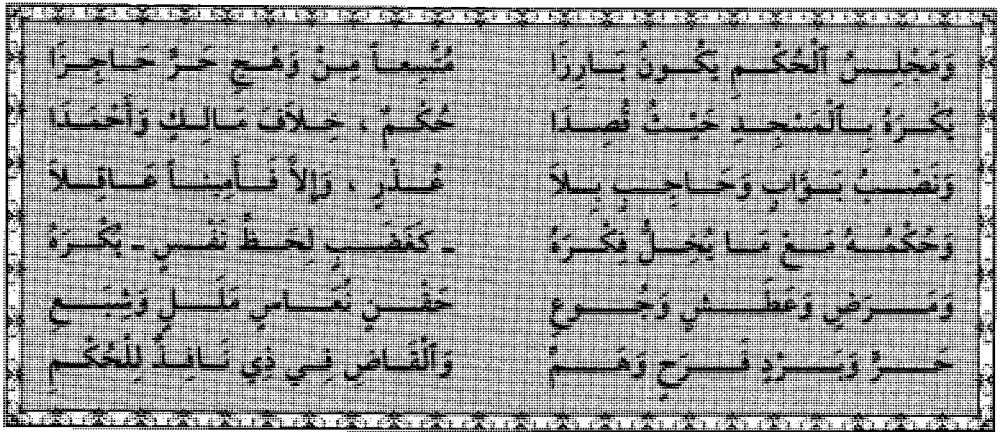 وَمَجْلِسُ ٱلْحُكْمِ يَكُونُ بَارِزَا مُتَّسِعاً مِنْ وَهْجِ حَرٍّ حَاجِزَا
يُكْرَهُ بِٱلْمَسْجِدِ حَيْثُ قُصِدَا حُكْمٌ ، خِلاَفَ مَالِكٍ وَأَحْمَدَا
وَنَصْبُ بَوَّابٍ وَحَاجِبٍ بِلاَ عُذْرٍ ، وَإِلاَّ فَأَمِيناً عَاقِلاَ
وَحُكْمُهُ مَعْ مَا يُخِلُّ فِكْرَهُ - كَغَضَبٍ لِحَظِّ نَفْسٍ - يُكْرَهُ
وَمَرَضٍ وَعَطَشٍ وَجُوعِ حَقْنٍ نُعَاسٍ مَلَلٍ وَشِبَعِ
حَرٍّ وَبَرْدٍ فَرَحٍ وَهَمِّ وَٱلْقَاضِ فِي ذِي نَافِذٌ لِلْحُكْمِ